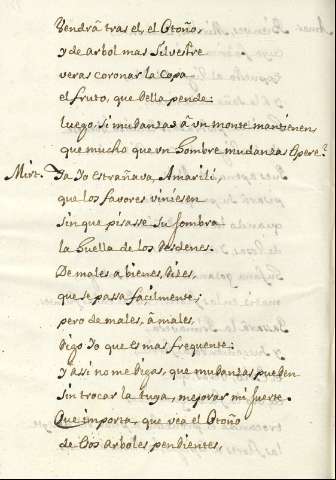 Vendrà tras el, el Otoño,
y de arbol mas silvestre
veras coronar la copa
el fruto, que della pende:
luego, si mudanzas à vn monte mantienen,
que mucho que vn hombre mudanzas espere?
Mirt. Ya Yo estrañava, Amarili,
que los favores viniesen
sin que pisasse su sombra
la huella de los desdenes.
De males a bienes, dizes,
que se passa facilmente;
pero de males, à males,
digo Yo que es mas frequente:
y assi no me digas, que mudanzas pueden
sin trocar la tuya, mejorar mi suerte.
Que importa, que vea el Otoño
de los arboles pendientes,